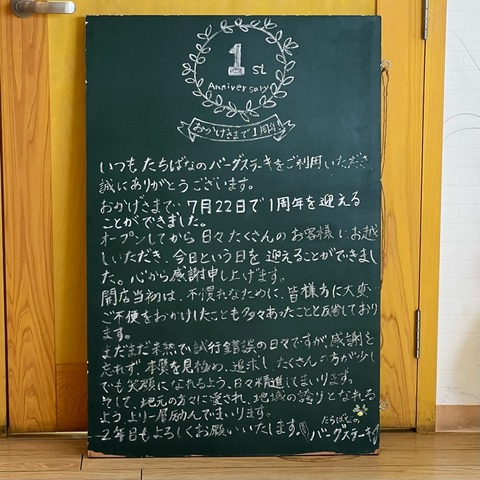 1st
Anniversary
おかげさまで1周年!
いつも たちばなのバーグステーキをご利用いただき
誠にありがとうございます。
おかげさまで 7月22日で1周年を迎える
ことができました。
オープンしてから 日々たくさんの お客様にお越
しいただき、今日という日を 迎えることができまし
た。心から感謝申し上げます。
開店当初は、不慣れなために、皆様方に大変
ご不便をおかけしたことも多々あったことと反省しており
ます。
まだまだ未熟で、試行錯誤の日々ですが、感謝を
忘れず 本質を見極め、追求し たくさんの方が少し
でも笑顔になれるよう、日々精進してまいります。
そして、地元の方々に愛され、地域の誇りとなれる
よう より一層励んでまいります。
2年目もよろしくお願いいたします。
たちばなの
バーグステーキ